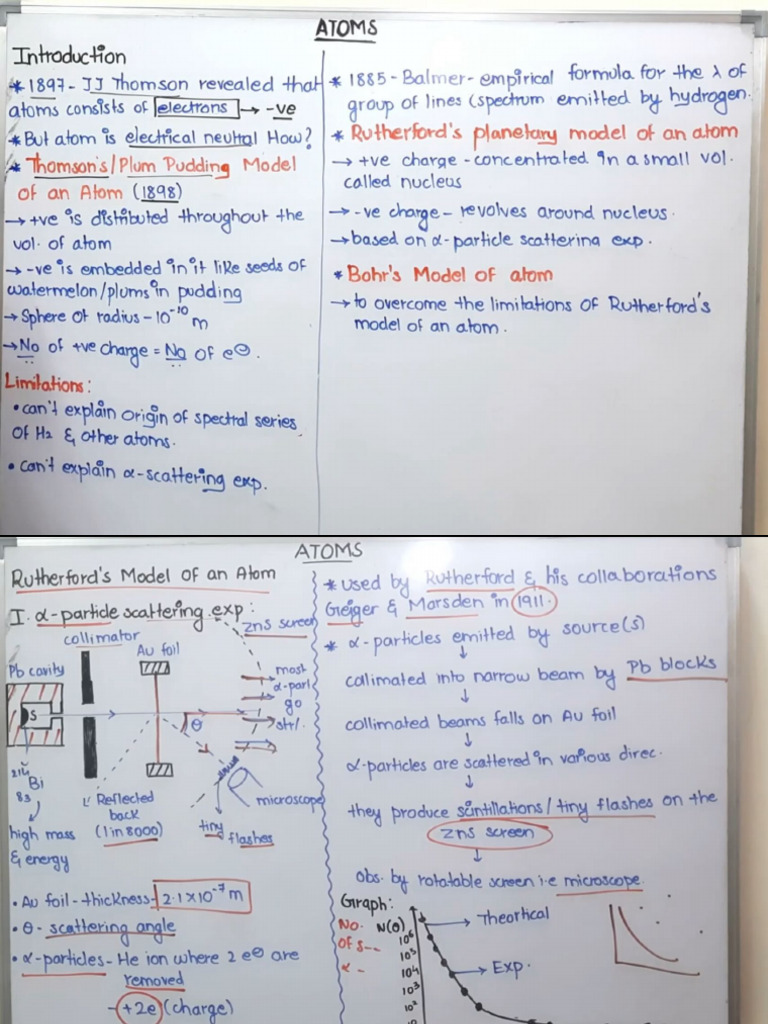 ATOMS
Introduction
* 1897 - JJ Thomson revealed that
atoms consists of electrons → -ve
* But atom is electrical neutral How?
* Thomson's/Plum Pudding Model
of an Atom (1898)
→ +ve is distributed throughout the
vol. of atom
→ -ve is embedded in it like seeds of
watermelon/plums in pudding
→ Sphere of radius - 10⁻¹⁰ m
→ No of +ve charge = No of e⊖.
Limitations:
• can't explain origin of spectral series
of H₂ & other atoms.
• Can't explain α-scattering exp.
* 1885 - Balmer - empirical formula for the λ of
group of lines (spectrum emitted by hydrogen.
* Rutherford's planetary model of an atom
→ +ve charge - concentrated in a small vol.
called nucleus
→ -ve charge - revolves around nucleus.
→ based on α-particle scattering exp.
* Bohr's Model of atom
→ to overcome the limitations of Rutherford's
model of an atom.
ATOMS
Rutherford's Model of an Atom
I. α-particle scattering exp:
zns screen
collimator
Au foil
Pb cavity
most
α-part
go
str/.
S
θ
214
Bi
83
high mass
& energy
L' Reflected
back
(1 in 8000)
tiny
flashes
microscope
• Au foil - thickness - 2.1×10⁻⁷ m
• θ - scattering angle
• α-particles - He ion where 2 e⊖ are
removed
+2e (charge)
* used by Rutherford & his collaborations
Geiger & Marsden in 1911.
* α-particles emitted by source(s)
↓
calimated into narrow beam by Pb blocks
↓
collimated beams falls on Au foil
↓
α-particles are scattered in various direc.
↓
they produce scintillations/tiny flashes on the
zns screen
↓
obs. by rotatable screen i.e microscope.
Graph:
No.
of s--
α-
N(θ)
10⁶
10⁵
10⁴
10³
10²
10
→ Theortical
→ Exp.